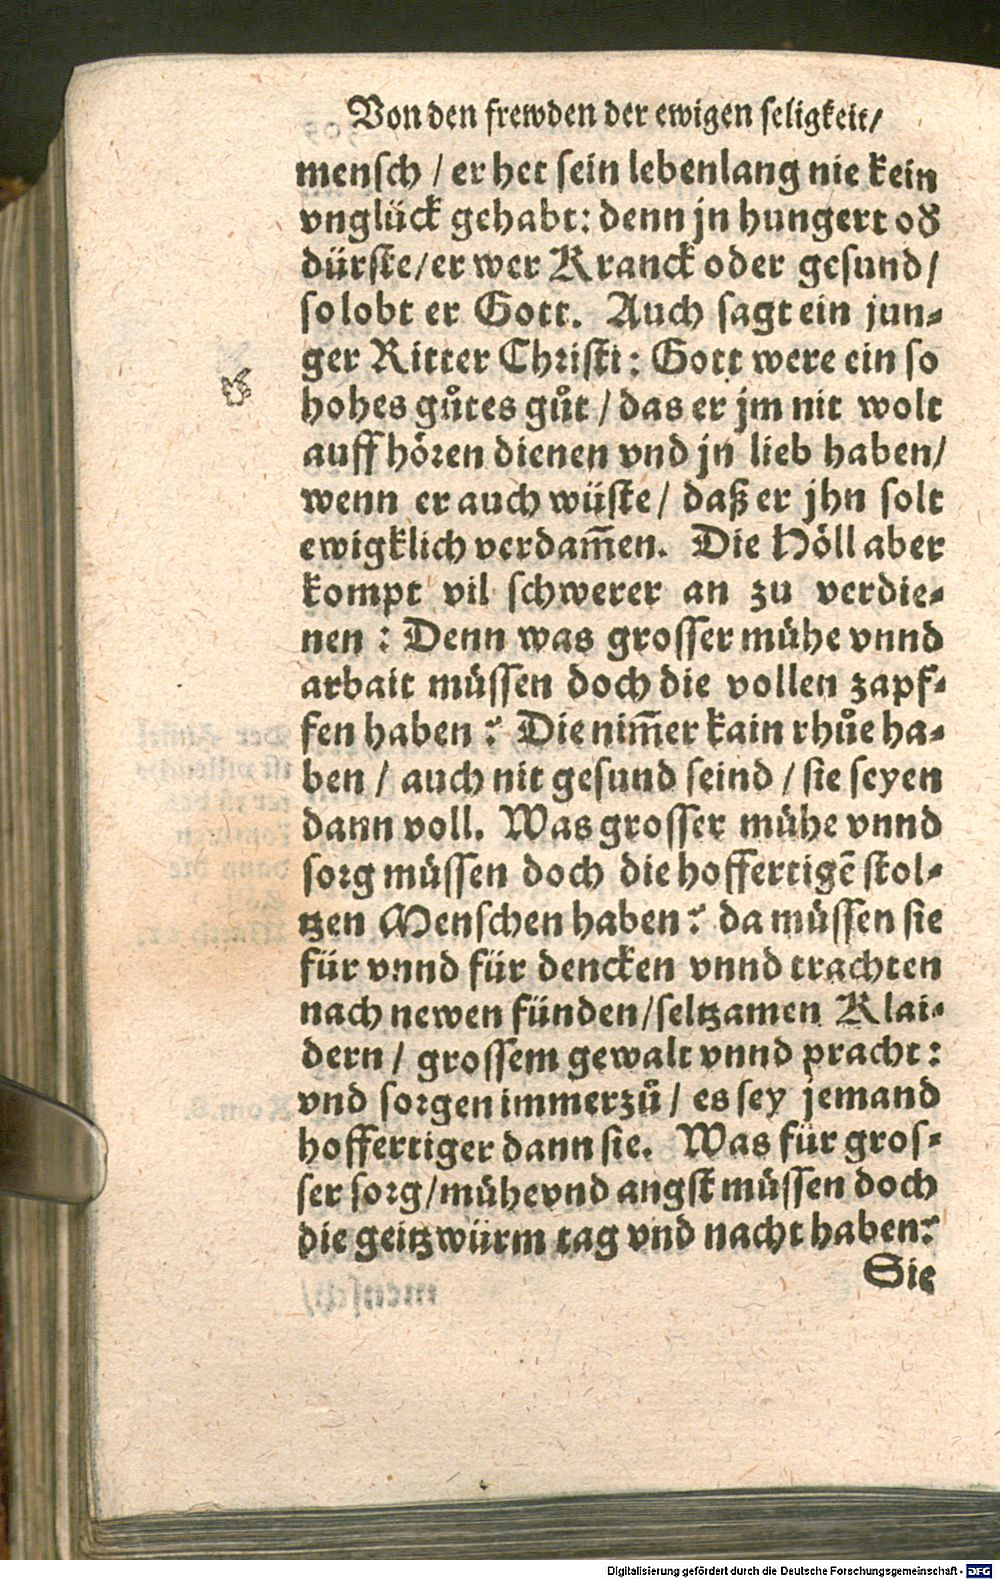 Von den frewden der ewigen seligkeit/
mensch / er het sein lebenlang nie kein
vnglück gehabt: denn jn hungert oď
dürste/er wer Kranck oder gesund/
so lobt er Gott. Auch sagt ein jun-
ger Ritter Christi: Gott were ein so
hohes gůtes gůt / das er jm nit wolt
auff hören dienen vnd jn lieb haben/
wenn er auch wüste/ daß er jhn solt
ewigklich verdam̃en. Die Höll aber
kompt vil schwerer an zu verdie-
nen : Denn was grosser mühe vnnd
arbait müssen doch die vollen zapf-
fen haben? Die nim̃er kain rhůe ha-
ben / auch nit gesund seind / sie seyen
dann voll. Was grosser mühe vnnd
sorg müssen doch die hoffertigẽ stol-
tzen Menschen haben? da müssen sie
für vnnd für dencken vnnd trachten
nach newen fünden/seltzamen Klai-
dern / grossem gewalt vnnd pracht:
vnd sorgen immerzů / es sey jemand
hoffertiger dann sie. Was für gros-
ser sorg/mühe vnd angst müssen doch
die geitzwürm tag vnd nacht haben?
Sie
Digitalisierung gefördert durch die Deutsche Forschungsgemeinschaft - DFG